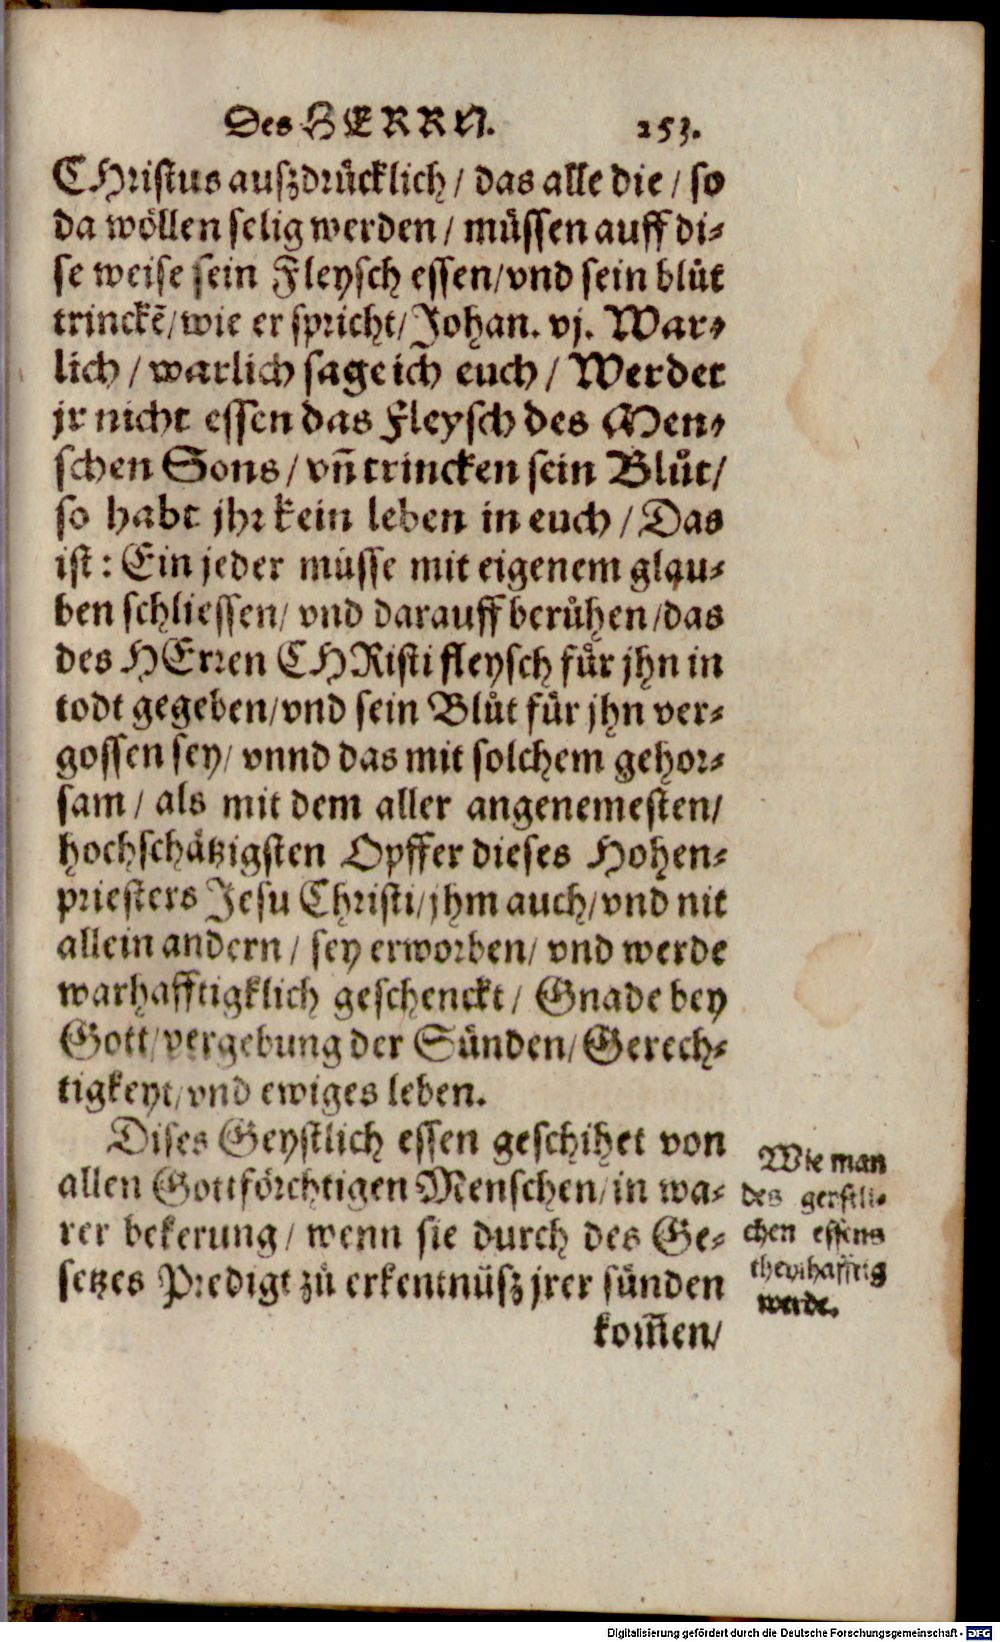 Des HERRN. 253.
CHristus auszdrücklich / das alle die / so
da wöllen selig werden / müssen auff di-
se weise sein Fleysch essen/vnd sein blůt
trinckẽ/wie er spricht/ Johan. vj. War-
lich / warlich sage ich euch / Werdet
jr nicht essen das Fleysch des Men-
schen Sons / vñ trincken sein Blůt/
so habt jhr kein leben in euch / Das
ist: Ein jeder müsse mit eigenem glau-
ben schliessen/ vnd darauff berůhen/das
des HErren CHRisti fleysch für jhn in
todt gegeben/vnd sein Blůt für jhn ver-
gossen sey/ vnnd das mit solchem gehor-
sam / als mit dem aller angenemesten/
hochschätzigsten Opffer dieses Hohen-
priesters Jesu Christi/jhm auch/vnd nit
allein andern / sey erworben/ vnd werde
warhafftigklich geschenckt / Gnade bey
Gott/vergebung der Sünden/ Gerech-
tigkeyt/vnd ewiges leben.
Dises Geystlich essen geschihet von
allen Gottförchtigen Menschen/in wa-
rer bekerung / wenn sie durch des Ge-
setzes Predigt zů erkentnüsz jrer sünden
kom̃en/
Wie man
des geystli-
chen essens
theylhafftig
werde.
Digitalisierung gefördert durch die Deutsche Forschungsgemeinschaft - DFG